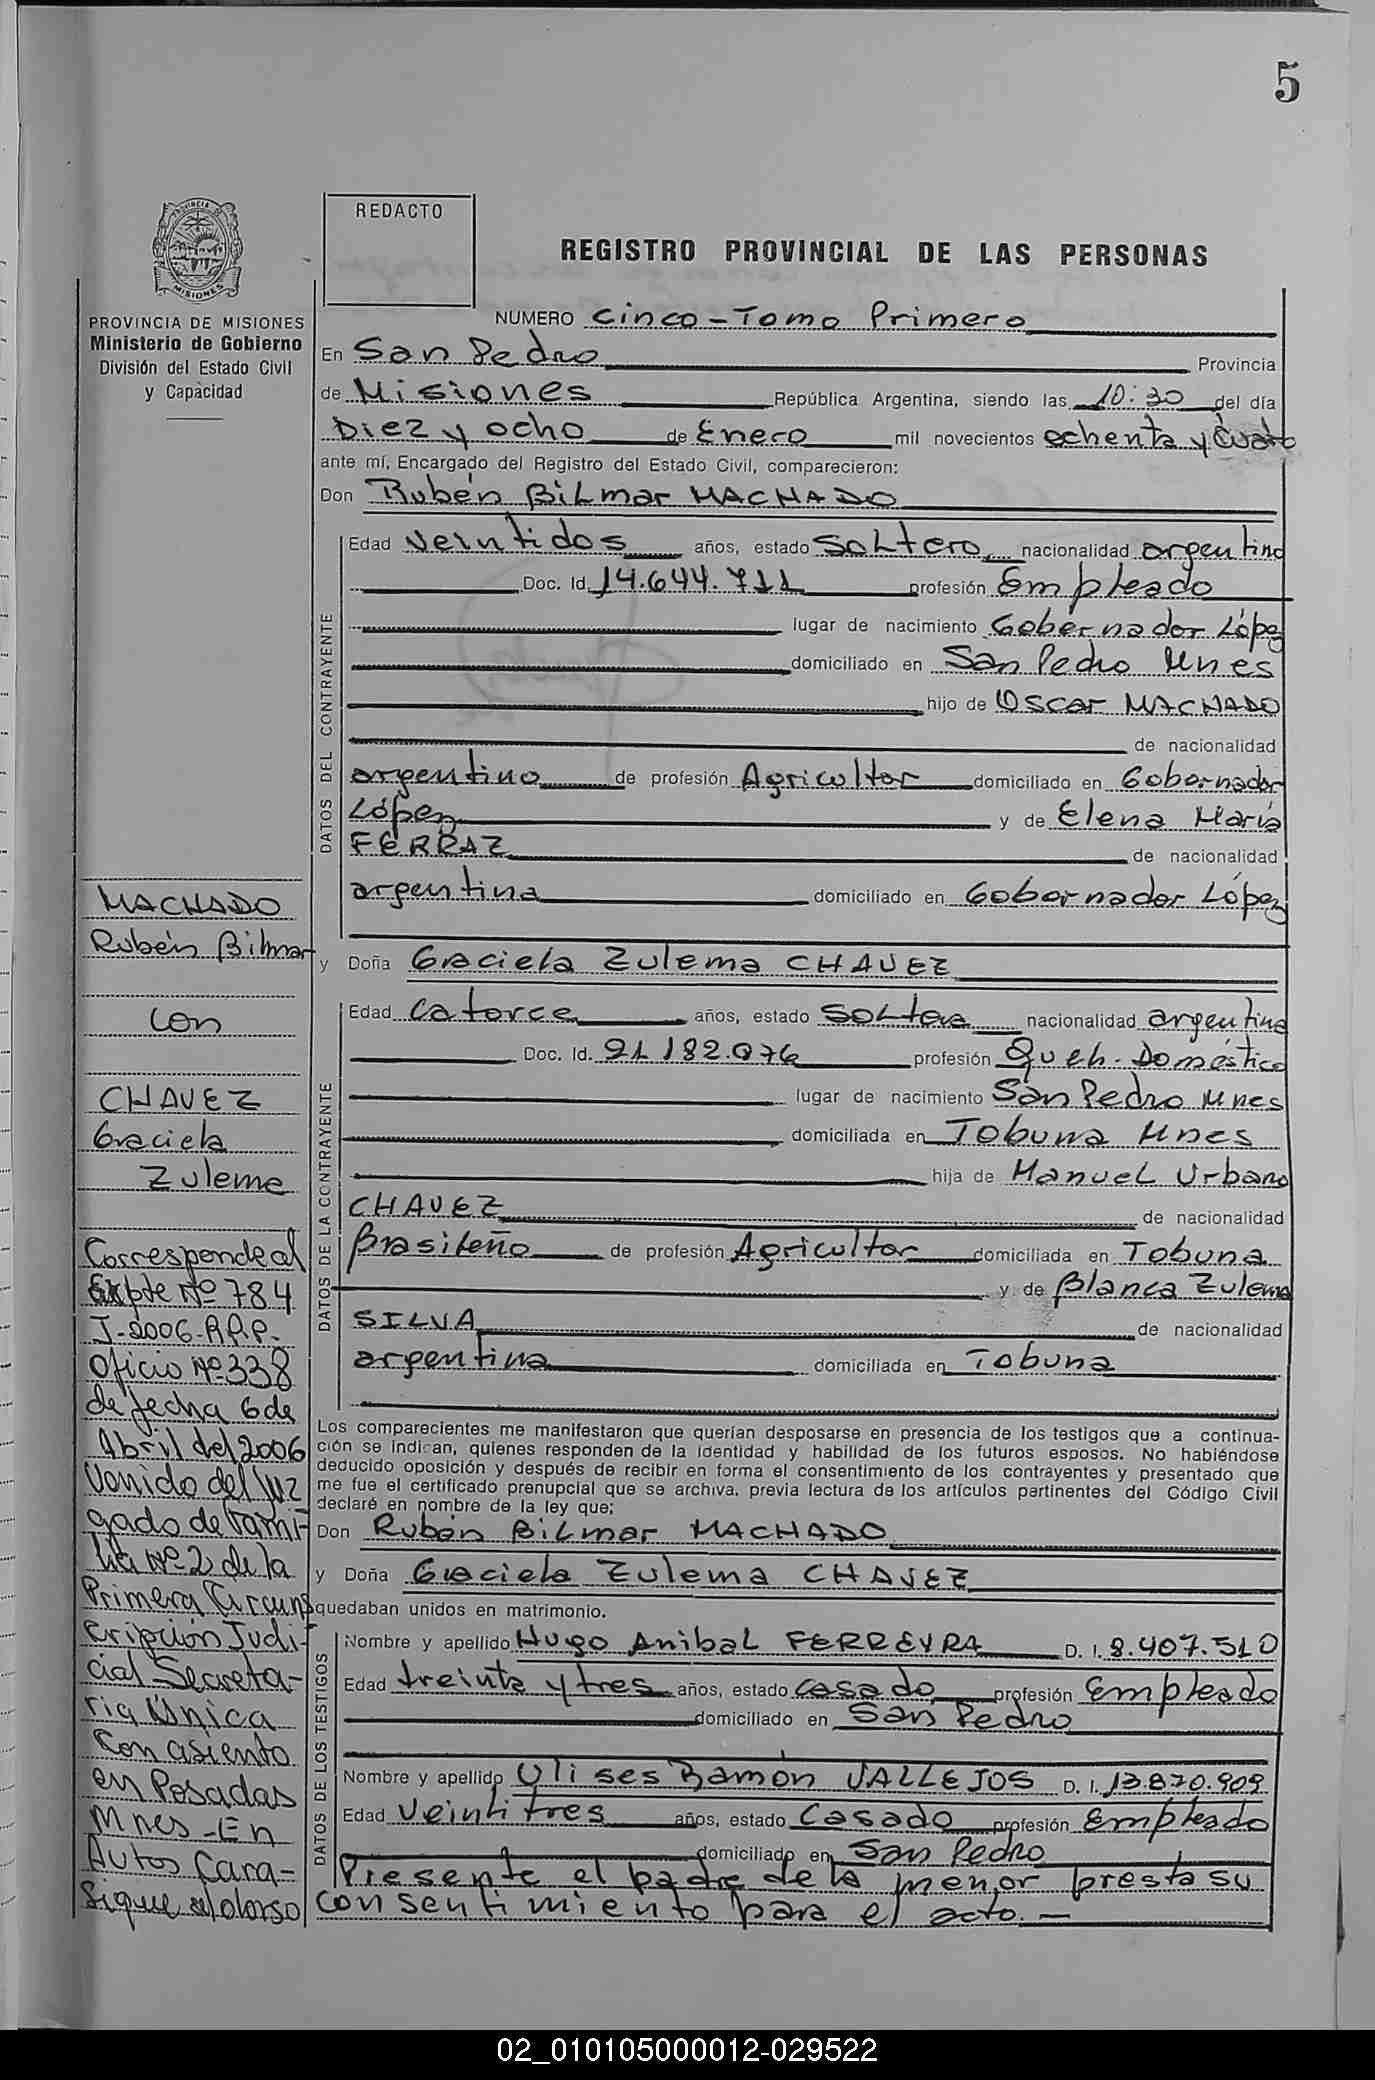 5
REDACTO
REGISTRO PROVINCIAL DE LAS PERSONAS
PROVINCIA DE MISIONES
Ministerio de Gobierno
División del Estado Civil
y Capacidad
NUMERO Cinco - Tomo Primero
En San Pedro Provincia
de Misiones República Argentina, siendo las 10:30 del día
Diez y ocho de Enero mil novecientos ochenta y cuatro
ante mí, Encargado del Registro del Estado Civil, comparecieron:
Don Rubén Bilmar MACHADO
DATOS DEL CONTRAYENTE
Edad veintidos años, estado Soltero nacionalidad argentino
Doc. Id. 14.644.711 profesión Empleado
lugar de nacimiento Gobernador López
domiciliado en San Pedro Mnes
hijo de Oscar MACHADO
de nacionalidad
argentino de profesión Agricultor domiciliado en Gobernador
López y de Elena María
FERRAZ de nacionalidad
argentina domiciliado en Gobernador López
y Doña Graciela Zulema CHAVEZ
DATOS DE LA CONTRAYENTE
Edad catorce años, estado Soltera nacionalidad argentina
Doc. Id. 21.182.076 profesión Queh. Doméstico
lugar de nacimiento San Pedro Mnes
domiciliada en Tobuna Mnes
hija de Manuel Urbano
CHAVEZ de nacionalidad
Brasileño de profesión Agricultor domiciliada en Tobuna
y de Blanca Zulema
SILVA de nacionalidad
argentina domiciliada en Tobuna
Los comparecientes me manifestaron que querían desposarse en presencia de los testigos que a continua-
ción se indican, quienes responden de la identidad y habilidad de los futuros esposos. No habiéndose
deducido oposición y después de recibir en forma el consentimiento de los contrayentes y presentado que
me fue el certificado prenupcial que se archiva, previa lectura de los artículos pertinentes del Código Civil
declaré en nombre de la ley que;
Don Rubén Bilmar MACHADO
y Doña Graciela Zulema CHAVEZ
quedaban unidos en matrimonio.
DATOS DE LOS TESTIGOS
Nombre y apellido Hugo Anibal FERREYRA D. I. 8.407.510
Edad treinta y tres años, estado casado profesión Empleado
domiciliado en San Pedro
Nombre y apellido Ulises Ramón VALLEJOS D. I. 13.870.909
Edad Veintitres años, estado Casado profesión Empleado
domiciliado en San Pedro
Presente el padre de la menor presta su
consentimiento para el acto.-
MACHADO
Rubén Bilmar
con
CHAVEZ
Graciela
Zulema
Corresponde al
Expte Nº 784
J-2006-R.P.P.
oficio Nº 338
de fecha 6 de
Abril del 2006
Venido del Juz
gado de Fami-
lia Nº 2 de la
Primera Circuns
cripción Judi-
cial Secreta-
ria Única
con asiento
en Posadas
Mnes - En
Autos Cara-
Sigue al dorso
02_010105000012-029522